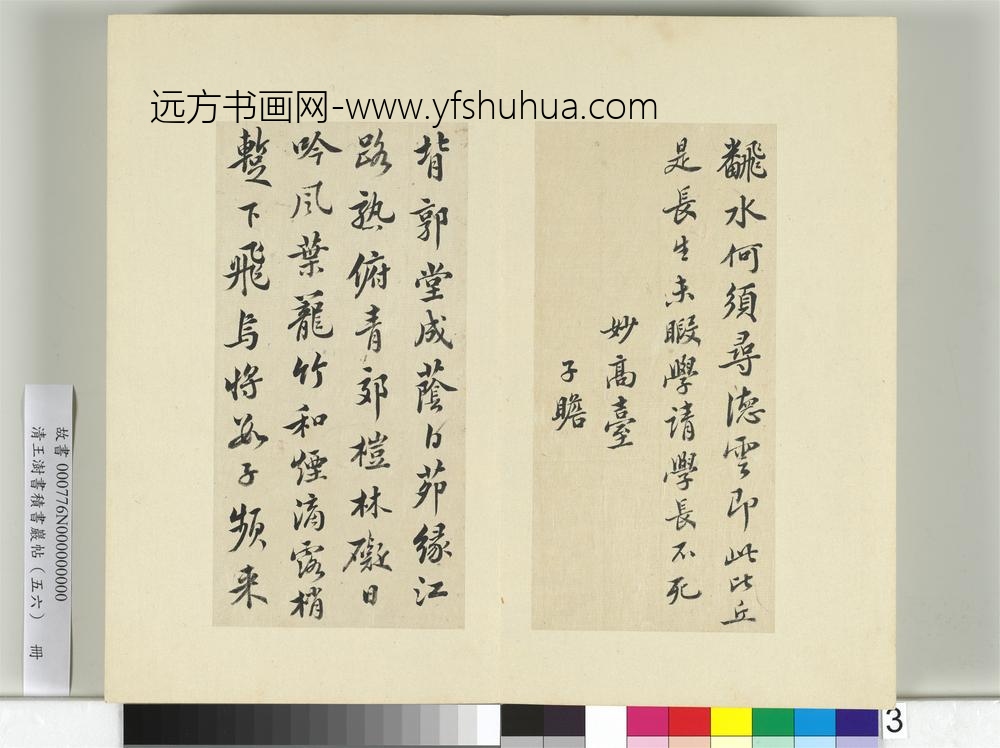 远方书画网-www.yfshuhua.com
翻水何須尋德雲即此比丘
是長生未暇學請學長不死
妙高臺
子瞻
背郭堂成蔭白茆緣江
路熟俯青郊榿林礙日
吟風葉籠竹和煙滴露梢
蹔下飛烏將數子頻来
故書 000776N000000000
清王澍書積書巖帖(五六) 冊
3